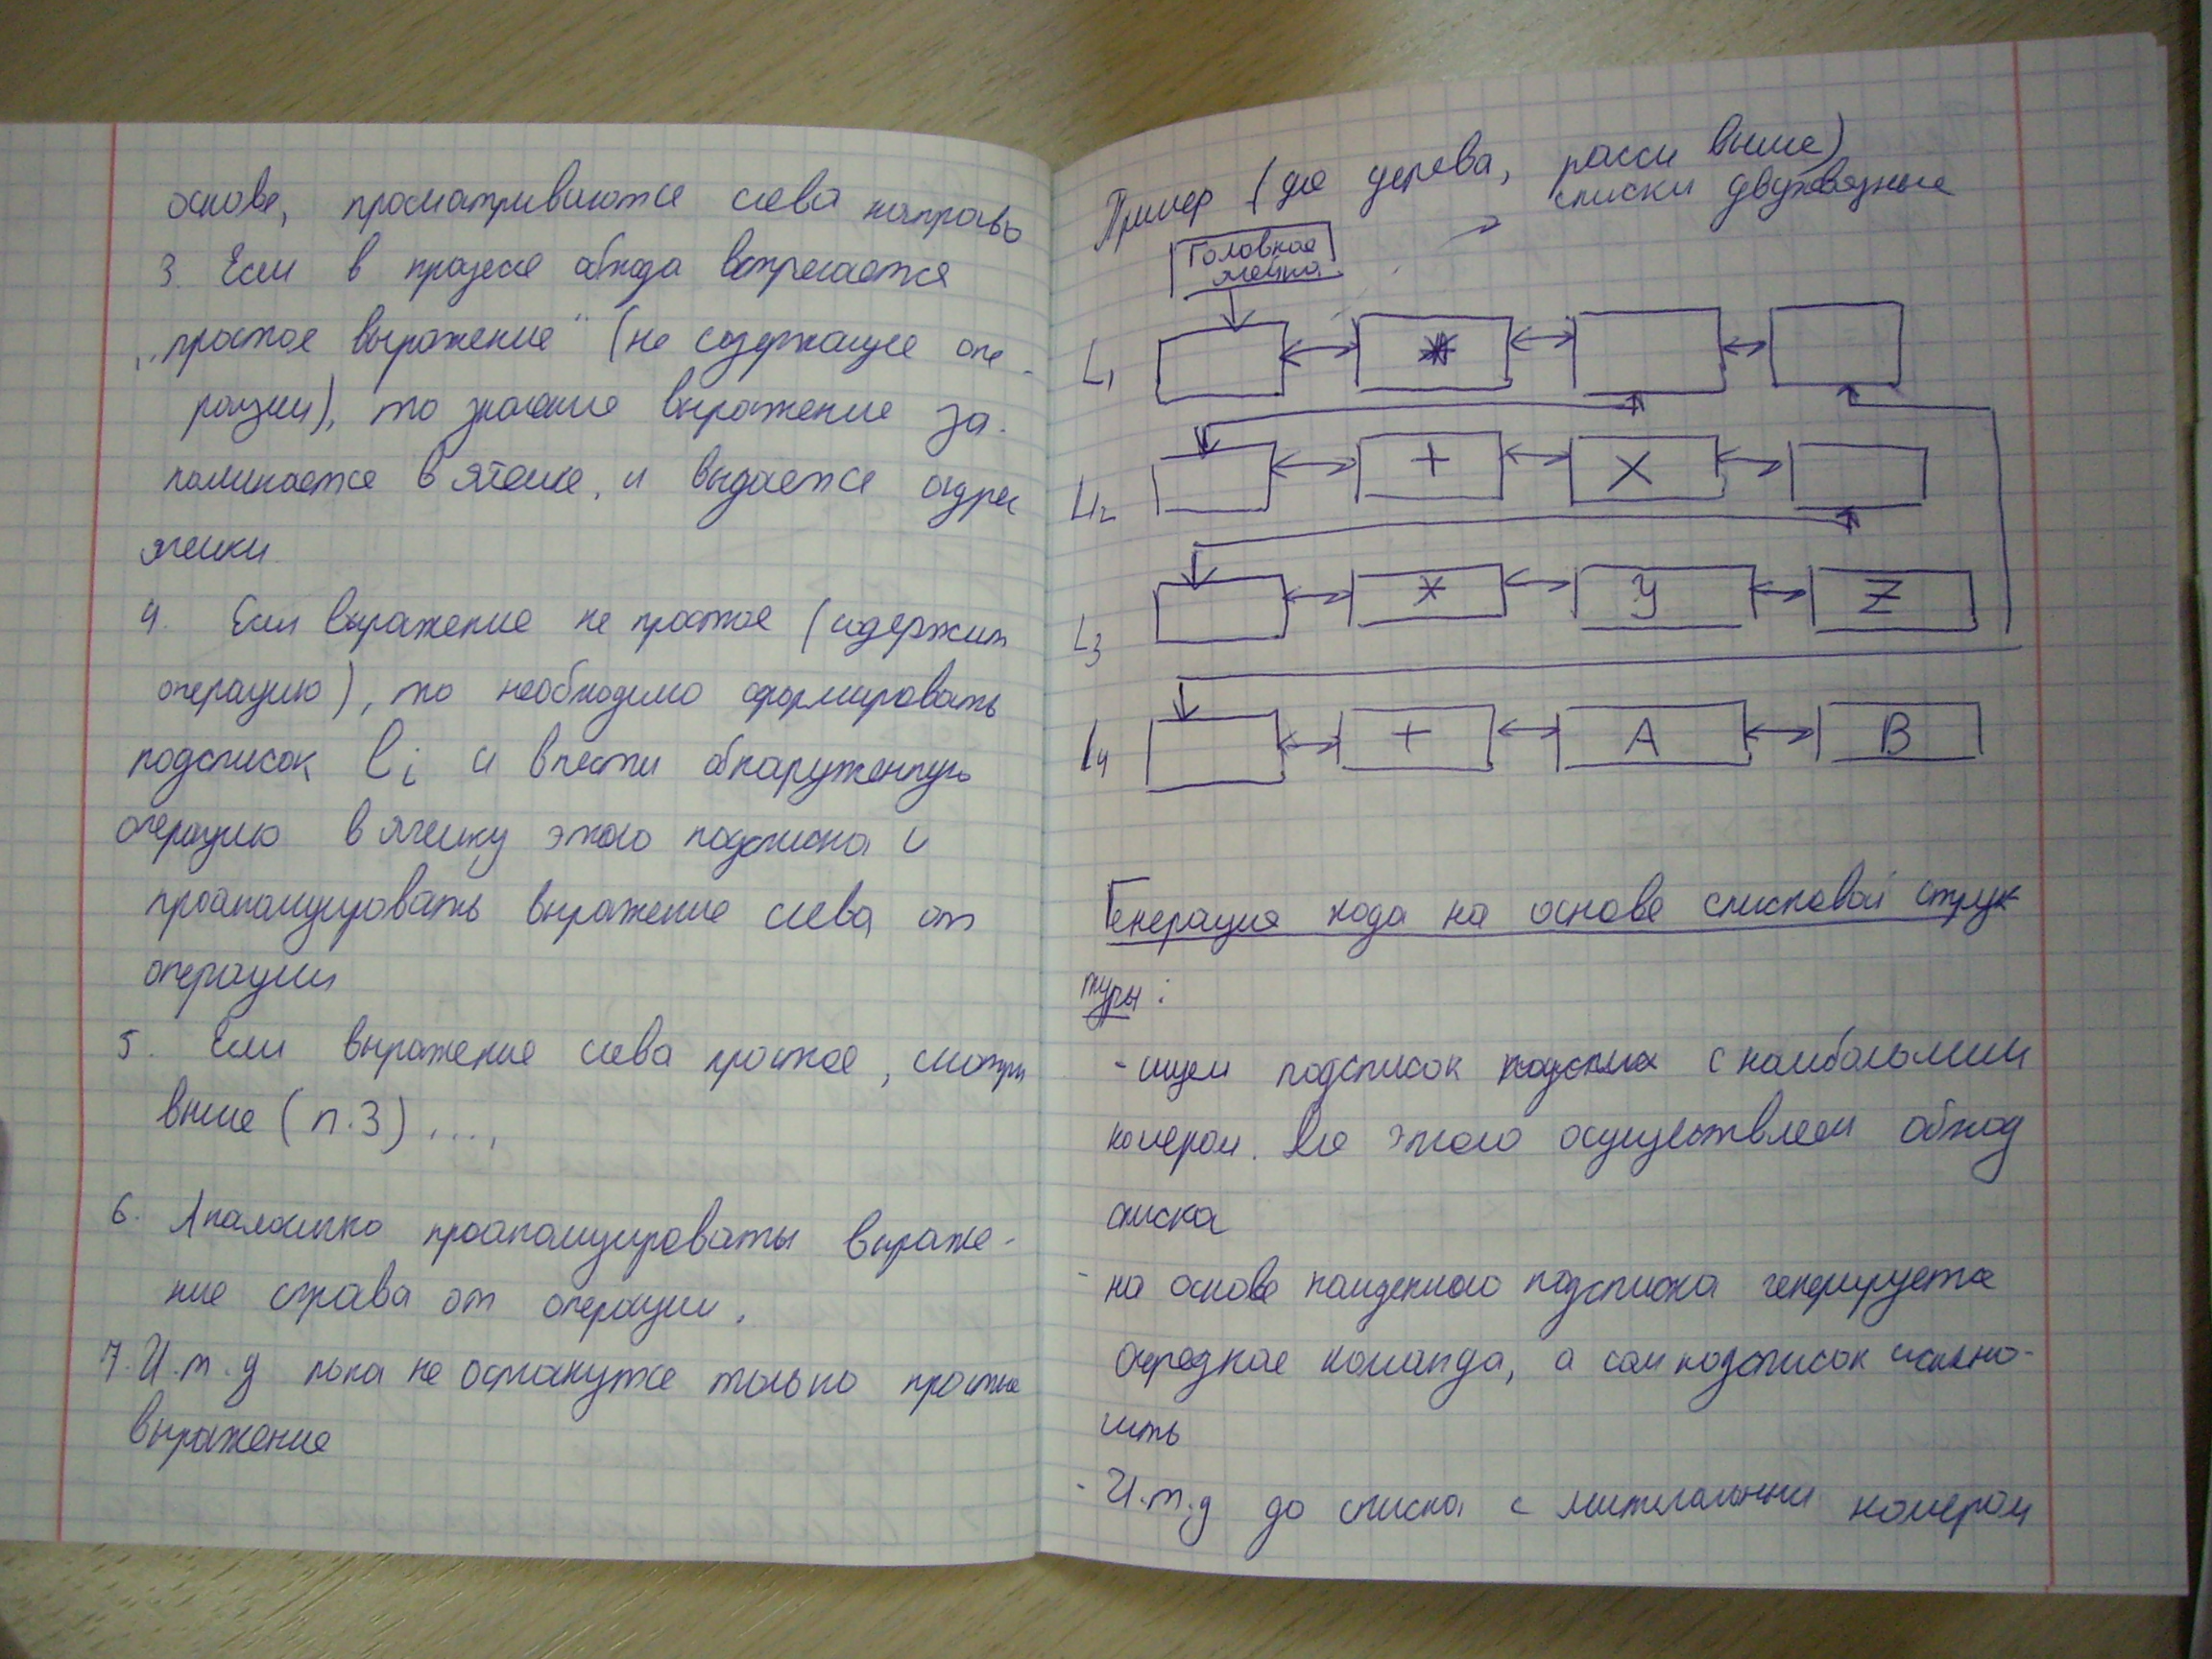 основе, просматриваются слева направо
3. Если в процессе обхода встречается
„простое выражение" (не содержащее опе-
рации), то значение выражение за-
поминается в ячейке, и выдается адрес
ячейки
4. Если выражение не простое (содержит
операцию), то необходимо сформировать
подсписок li и внести обнаруженную
операцию в ячейку этого подсписка и
проанализировать выражение слева от
операции
5. Если выражение слева простое, смотри
выше (п.3) ...,
6. Аналогично проанализировать выраже-
ние справа от операции.
7. И.т.д пока не останутся только простые
выражение
Пример (для дерева, рассм выше)
списки двухсвязные
Головная
ячейка
L1 *
L2 + X
L3 * Y Z
L4 + A B
Генерация кода на основе списковой струк
туры:
- ищем подсписок с наибольшим
номером. Для этого осуществляем обход
списка
- на основе найденного подсписка генерируется
очередная команда, а сам подсписок исклю-
чить
- И.т.д до списка с номером